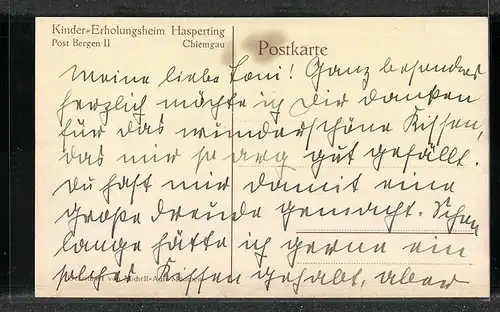 Kinder-Erholungsheim Hasperting
Post Bergen II Chiemgau
Postkarte
Meine liebe Toni! Ganz besonders
herzlich möchte ich Dir danken
für das wunderschöne Kissen,
das mir so arg gut gefällt.
Du hast mir damit eine
große Freude gemacht. Schon
lange hätte ich gerne ein
solches Kissen gehabt, aber